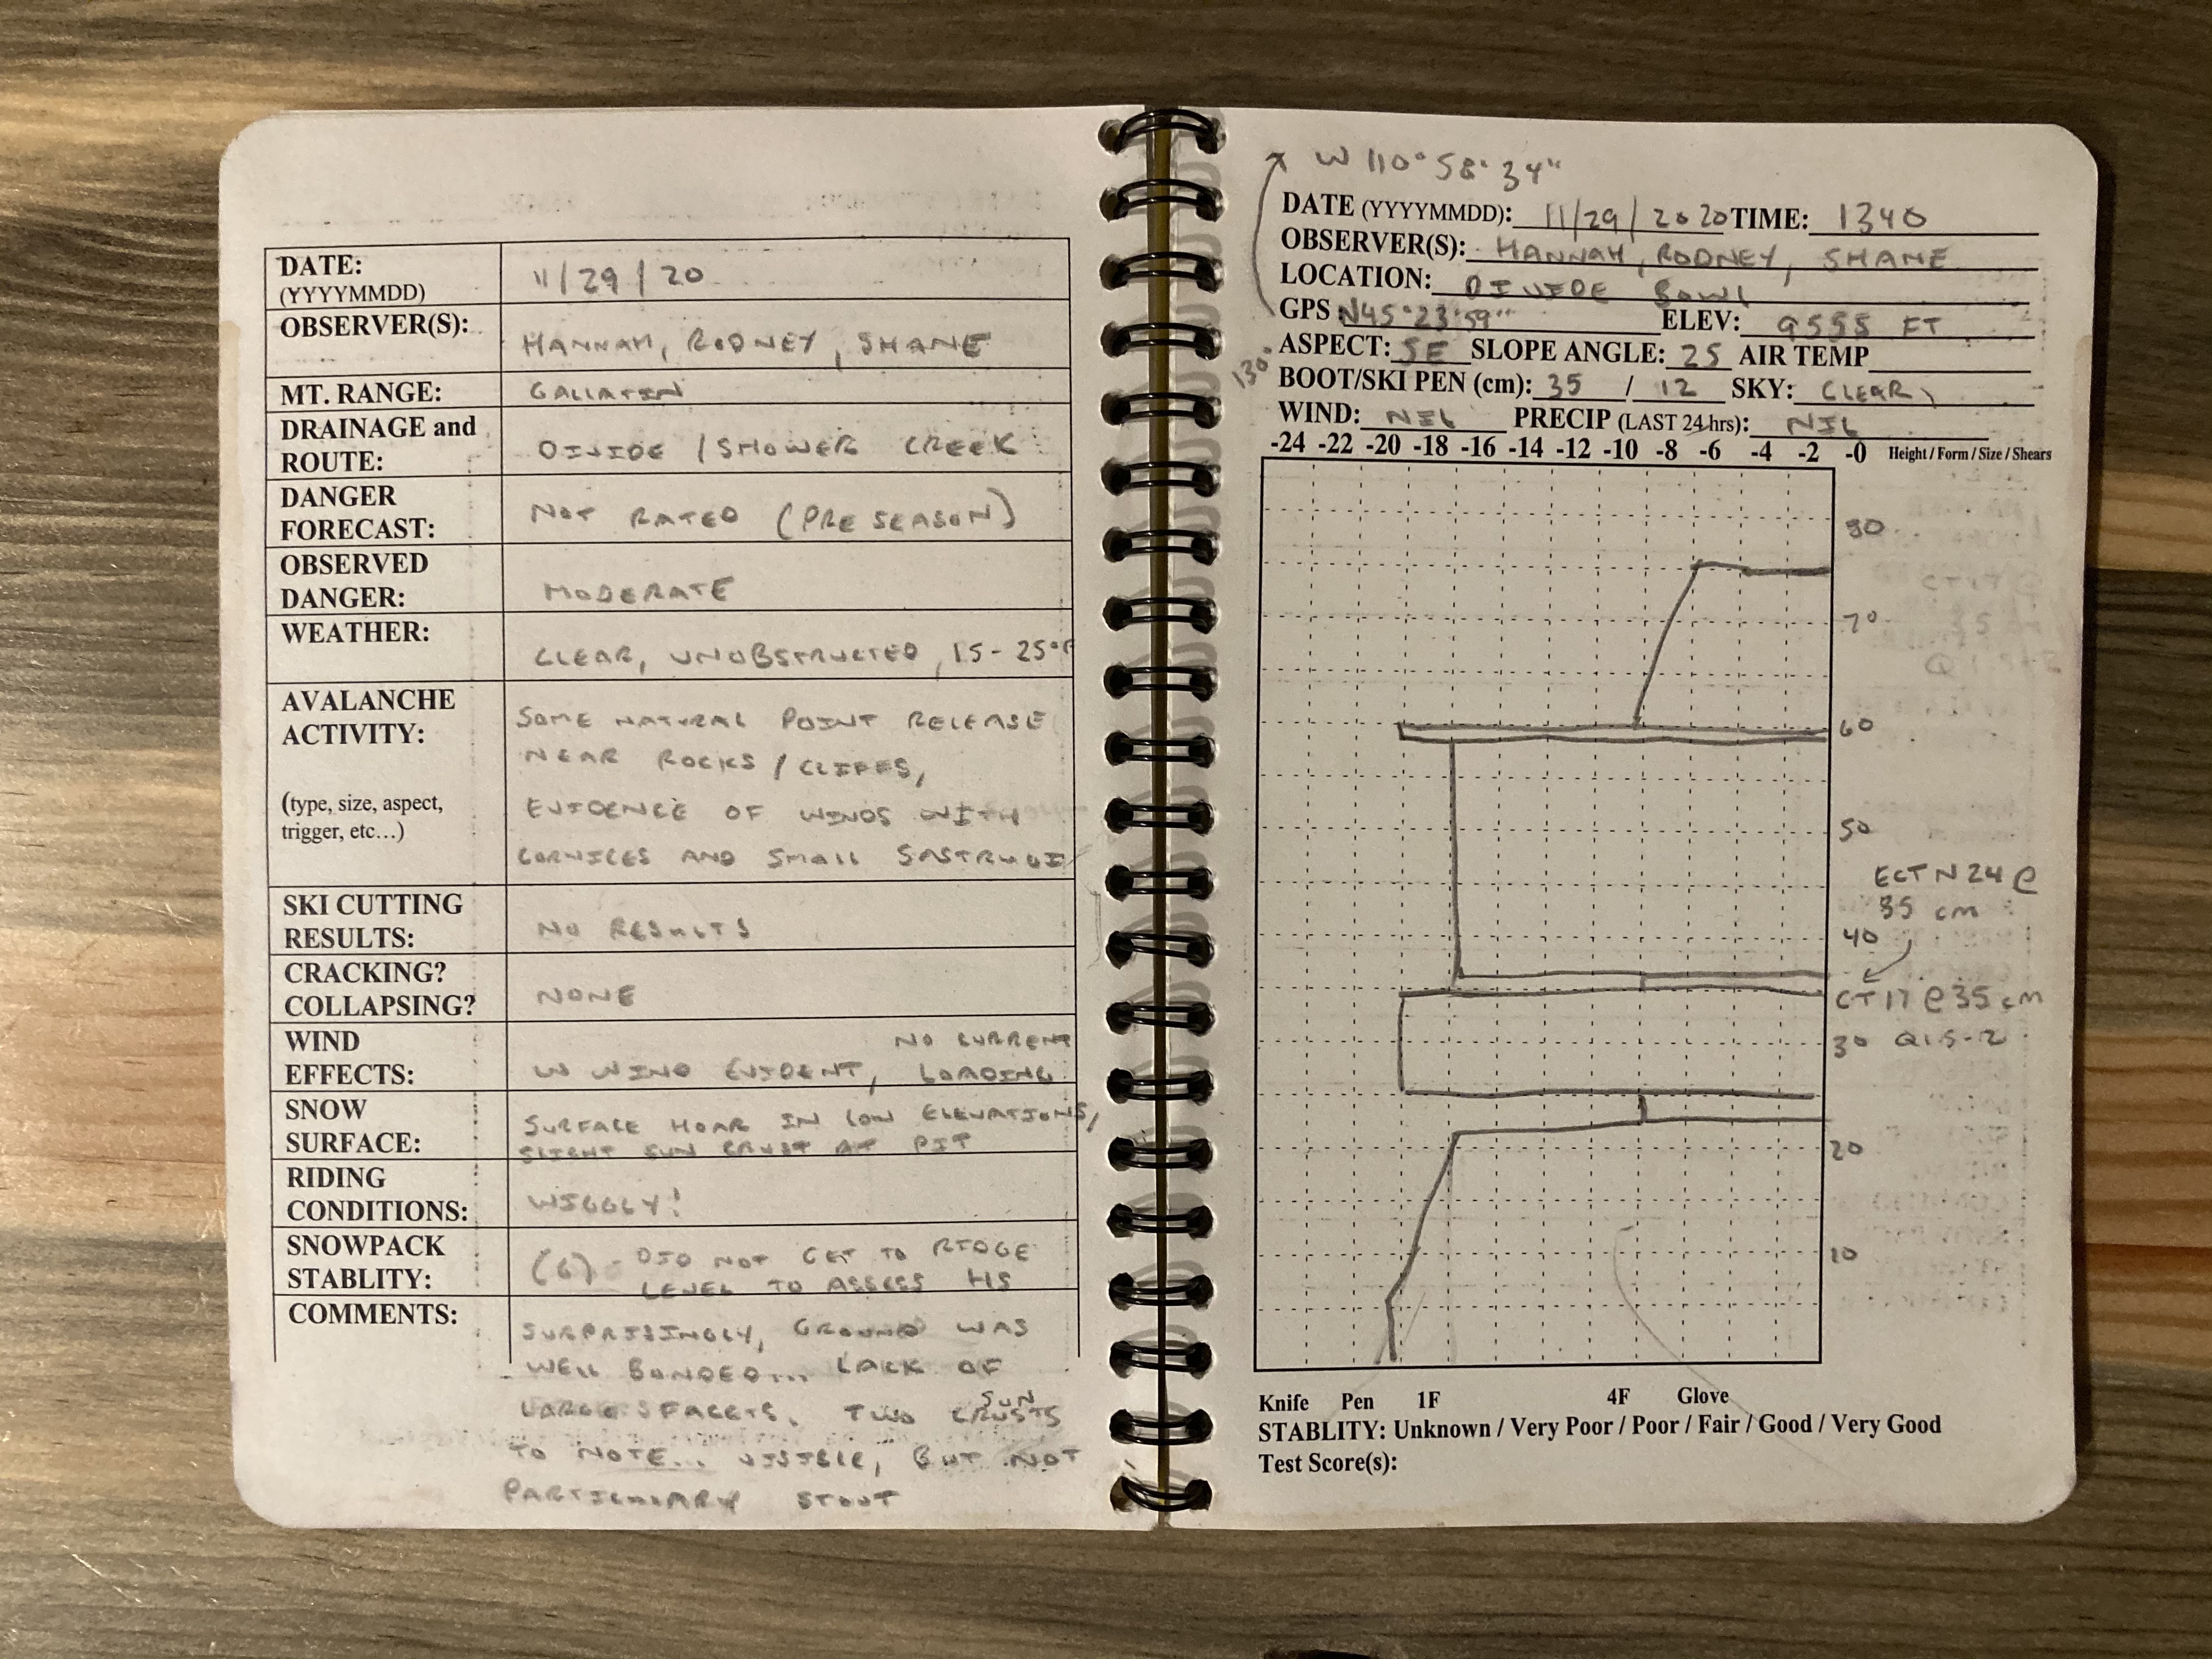 DATE: 11/29/20
(YYYYMMDD)
OBSERVER(S): HANNAH, RODNEY, SHANE
MT. RANGE: GALLATIN
DRAINAGE and
ROUTE: DIVIDE / SHOWER CREEK
DANGER
FORECAST: NOT RATED (PRE SEASON)
OBSERVED
DANGER: MODERATE
WEATHER: CLEAR, UNOBSTRUCTED, 15-25°F
AVALANCHE
ACTIVITY:
(type, size, aspect,
trigger, etc...)
SOME NATURAL POINT RELEASE
NEAR ROCKS / CLIFFS,
EVIDENCE OF WINDS WITH
CORNICES AND SMALL SASTRUGI
SKI CUTTING
RESULTS: NO RESULTS
CRACKING?
COLLAPSING? NONE
WIND
EFFECTS: W WIND EVIDENT, NO CURRENT
LOADING
SNOW
SURFACE: SURFACE HOAR IN LOW ELEVATIONS,
SLIGHT SUN CRUST AT PIT
RIDING
CONDITIONS: WIGGLY!
SNOWPACK
STABLITY: (G) - DID NOT GET TO RIDGE
LEVEL TO ASSESS HS
COMMENTS: SURPRISINGLY, GROUND WAS
WELL BONDED... LACK OF
LARGE FACETS. TWO SUN CRUSTS
TO NOTE... VISIBLE, BUT NOT
PARTICULARY STOUT
W 110° 58' 34"
DATE (YYYYMMDD): 11/29/2020 TIME: 1340
OBSERVER(S): HANNAH, RODNEY, SHANE
LOCATION: DIVIDE BOWL
GPS N45°23'59" ELEV: 9555 FT
130° ASPECT: SE SLOPE ANGLE: 25 AIR TEMP
BOOT/SKI PEN (cm): 35 / 12 SKY: CLEAR
WIND: NIL PRECIP (LAST 24 hrs): NIL
-24 -22 -20 -18 -16 -14 -12 -10 -8 -6 -4 -2 -0 Height / Form / Size / Shears
80
70
60
50
ECTN24@
35 cm
40
CT17@35cm
30 Q1.5-2
20
10
Knife Pen 1F 4F Glove
STABLITY: Unknown / Very Poor / Poor / Fair / Good / Very Good
Test Score(s):